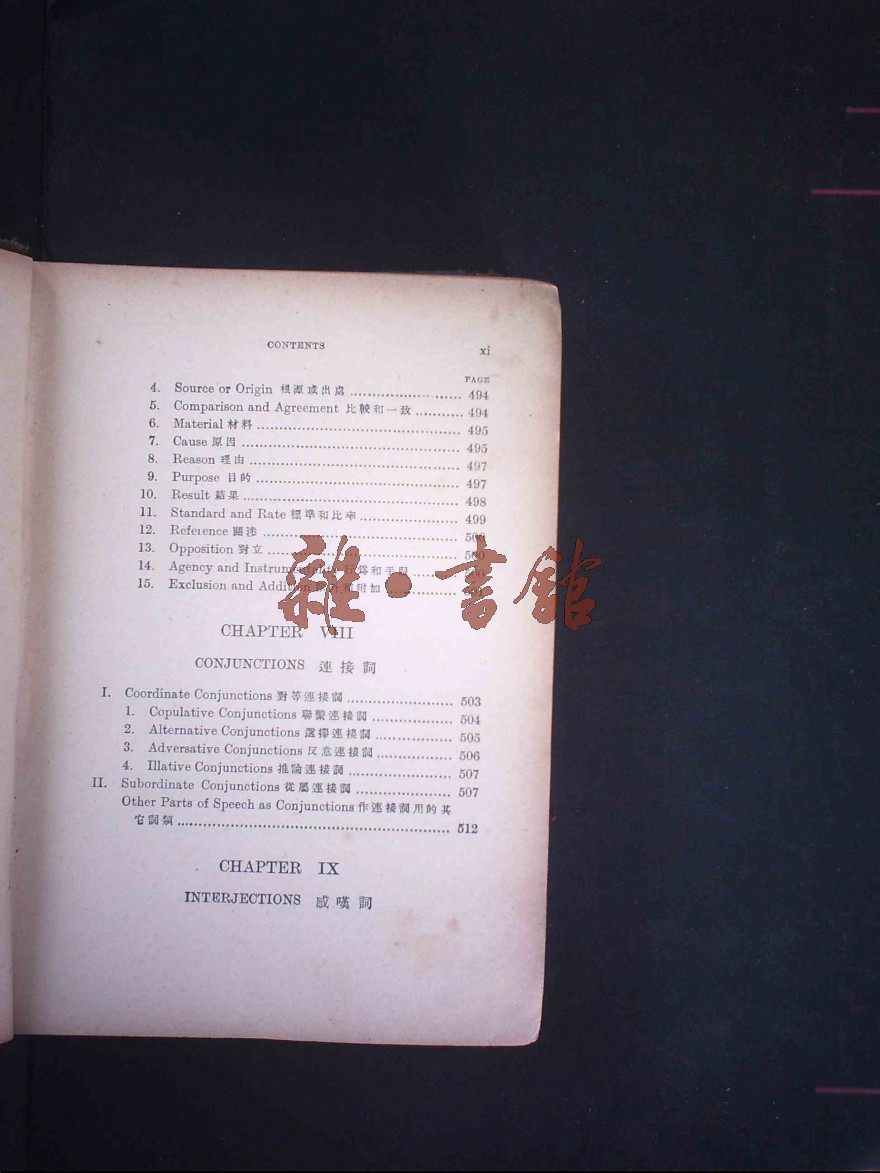 CONTENTS xi
PAGE
4. Source or Origin 根源或出處 ........................ 494
5. Comparison and Agreement 比較和一致 ........... 494
6. Material 材料 ................................................ 495
7. Cause 原因 .................................................... 495
8. Reason 理由 .................................................. 497
9. Purpose 目的 ................................................. 497
10. Result 結果 .................................................. 498
11. Standard and Rate 標準和比率 ....................... 499
12. Reference 關涉 ..............................................
13. Opposition 對立 .............................................
14. Agency and Instrumentality
15. Exclusion and Addition 附加
雜·書館
CHAPTER VIII
CONJUNCTIONS 連接詞
I. Coordinate Conjunctions 對等連接詞 ......................... 503
1. Copulative Conjunctions 聯繫連接詞 ................... 504
2. Alternative Conjunctions 選擇連接詞 ................... 505
3. Adversative Conjunctions 反意連接詞 .................. 506
4. Illative Conjunctions 推論連接詞 ........................ 507
II. Subordinate Conjunctions 從屬連接詞 ....................... 507
Other Parts of Speech as Conjunctions 作連接詞用的其
它詞類 ................................................................. 512
CHAPTER IX
INTERJECTIONS 感嘆詞